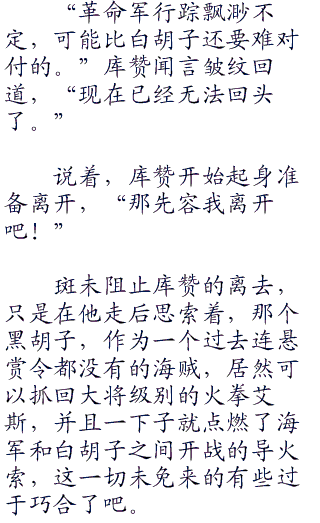 “革命军行踪飘渺不
定，可能比白胡子还要难对
付的。”库赞闻言皱纹回
道，“现在已经无法回头
了。”
说着，库赞开始起身准
备离开，“那先容我离开
吧！”
斑未阻止库赞的离去，
只是在他走后思索着，那个
黑胡子，作为一个过去连悬
赏令都没有的海贼，居然可
以抓回大将级别的火拳艾
斯，并且一下子就点燃了海
军和白胡子之间开战的导火
索，这一切未免来的有些过
于巧合了吧。